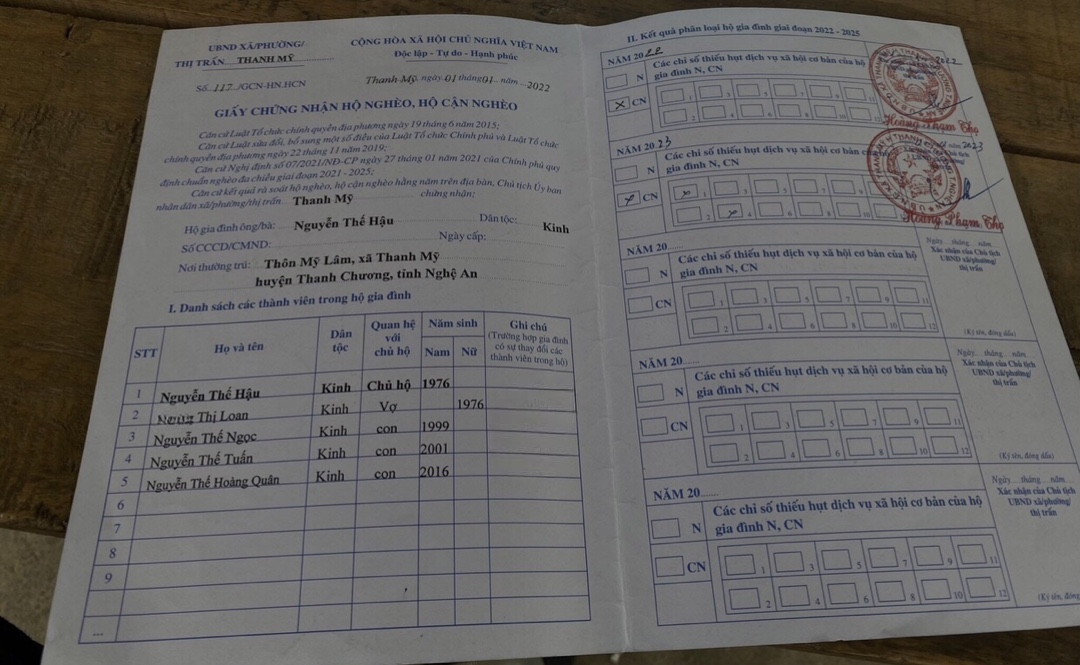 UBND XÃ/PHƯỜNG/
THỊ TRẤN THANH MỸ
CỘNG HÒA XÃ HỘI CHỦ NGHĨA VIỆT NAM
Độc lập - Tự do - Hạnh phúc
Số: 117./GCN-HN.HCN
Thanh Mỹ, ngày 01 tháng 01. năm ...2022
GIẤY CHỨNG NHẬN HỘ NGHÈO, HỘ CẬN NGHÈO
Căn cứ Luật Tổ chức chính quyền địa phương ngày 19 tháng 6 năm 2015;
Căn cứ Luật sửa đổi, bổ sung một số điều của Luật Tổ chức Chính phủ và Luật Tổ chức
chính quyền địa phương ngày 22 tháng 11 năm 2019;
Căn cứ Nghị định số 07/2021/NĐ-CP ngày 27 tháng 01 năm 2021 của Chính phủ quy
định chuẩn nghèo đa chiều giai đoạn 2021 - 2025;
Căn cứ kết quả rà soát hộ nghèo, hộ cận nghèo hằng năm trên địa bàn, Chủ tịch Ủy ban
nhân dân xã/phường/thị trấn Thanh Mỹ chứng nhận:
Hộ gia đình ông/bà: Nguyễn Thế Hậu Dân tộc: Kinh
Số CCCD/CMND: Ngày cấp:
Nơi thường trú: Thôn Mỹ Lâm, xã Thanh Mỹ
huyện Thanh Chương, tỉnh Nghệ An
I. Danh sách các thành viên trong hộ gia đình
STT Họ và tên Dân tộc Quan hệ với chủ hộ Năm sinh Nam Nữ Ghi chú (Trường hợp gia đình có sự thay đổi các thành viên trong hộ)
1 Nguyễn Thế Hậu Kinh Chủ hộ 1976
2 Thị Loan Kinh Vợ 1976
3 Nguyễn Thế Ngọc Kinh con 1999
4 Nguyễn Thế Tuấn Kinh con 2001
5 Nguyễn Thế Hoàng Quân Kinh con 2016
6
7
8
9
...
II. Kết quả phân loại hộ gia đình giai đoạn 2022 - 2025
NĂM 2022
Các chỉ số thiếu hụt dịch vụ xã hội cơ bản của hộ
gia đình N, CN
N
x CN
1 3 5 7 9 11
2 4 6 8 10 12
2022
Hoàng Phạm Thọ
NĂM 2023
Các chỉ số thiếu hụt dịch vụ xã hội cơ bản của hộ
gia đình N, CN
N
x CN
x 1 3 5 7 9
2 x 4 6 8 10
năm 2023
Hoàng Phạm Thọ
NĂM 20.......
Các chỉ số thiếu hụt dịch vụ xã hội cơ bản của hộ
gia đình N, CN
N
CN
1 3 5 7 9 11
2 4 6 8 10 12
Ngày...tháng...năm...
Xác nhận của Chủ tịch
UBND xã/phường/
thị trấn
(Ký tên, đóng dấu)
NĂM 20.......
Các chỉ số thiếu hụt dịch vụ xã hội cơ bản của hộ
gia đình N, CN
N
CN
1 3 5 7 9 11
2 4 6 8 10 12
Ngày....tháng....năm....
Xác nhận của Chủ tịch
UBND xã/phường/
thị trấn
(Ký tên, đóng dấu)
NĂM 20.......
Các chỉ số thiếu hụt dịch vụ xã hội cơ bản của hộ
gia đình N, CN
N
CN
1 3 5 7 9 11
2 4 6 8 10 12
Ngày....tháng....năm....
Xác nhận của Chủ tịch
UBND xã/phường/
thị trấn
(Ký tên, đóng